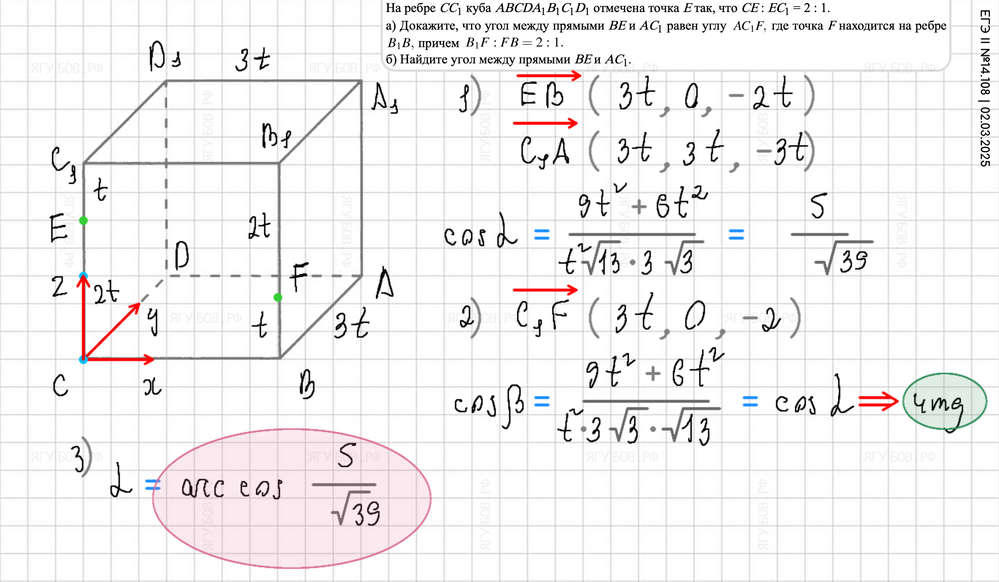 На ребре CC₁ куба ABCDA₁B₁C₁D₁ отмечена точка E так, что CE : EC₁ = 2 : 1.
а) Докажите, что угол между прямыми BE и AC₁ равен углу AC₁F, где точка F находится на ребре
B₁B, причем B₁F : FB = 2 : 1.
б) Найдите угол между прямыми BE и AC₁.
ЕГЭ II №14.108 | 02.03.2025
D₁ 3t
A₁
B₁
C₁
t
E
2t
D
F
A
z 2t
y
t
3t
C x B
1) EB ( 3t, 0, -2t )
C₁A ( 3t, 3t, -3t)
cos α = (9t² + 6t²) / (t²√13 · 3√3) = 5/√39
2) C₁F ( 3t, 0, -2 )
cos β = (9t² + 6t²) / (t² · 3√3 · √13) = cos α ⇒ чтд
3) α = arc cos 5/√39
ЯГУБОВ.РФ